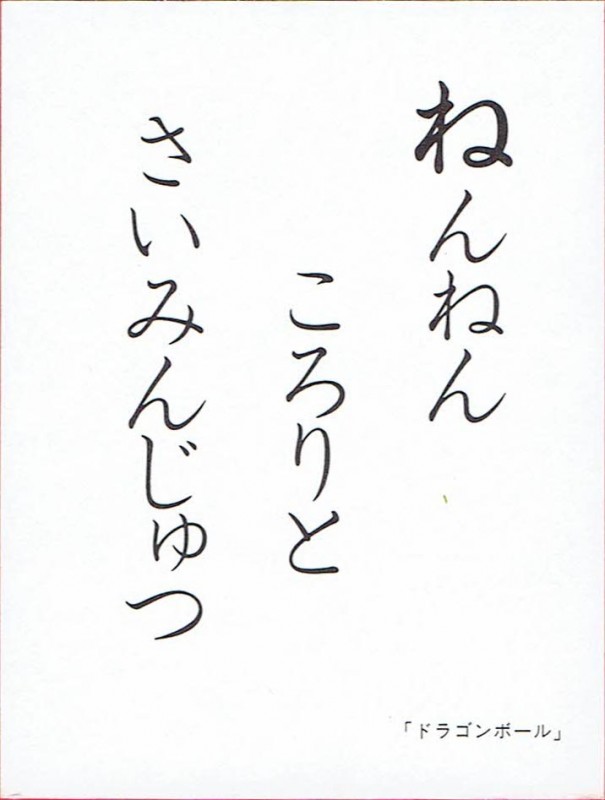 ねんねん
ころりと
さいみんじゅつ
「ドラゴンボール」